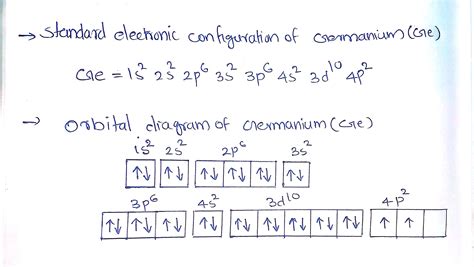 → Standard electronic configuration of Germanium (Ge)
Ge = 1s² 2s² 2p⁶ 3s² 3p⁶ 4s² 3d¹⁰ 4p²
→ Orbital diagram of Germanium (Ge)
1s² 2s² 2p⁶ 3s²
↑↓ ↑↓ ↑↓ ↑↓ ↑↓ ↑↓
3p⁶ 4s² 3d¹⁰ 4p²
↑↓ ↑↓ ↑↓ ↑↓ ↑↓ ↑↓ ↑↓ ↑↓ ↑↓ ↑ ↑